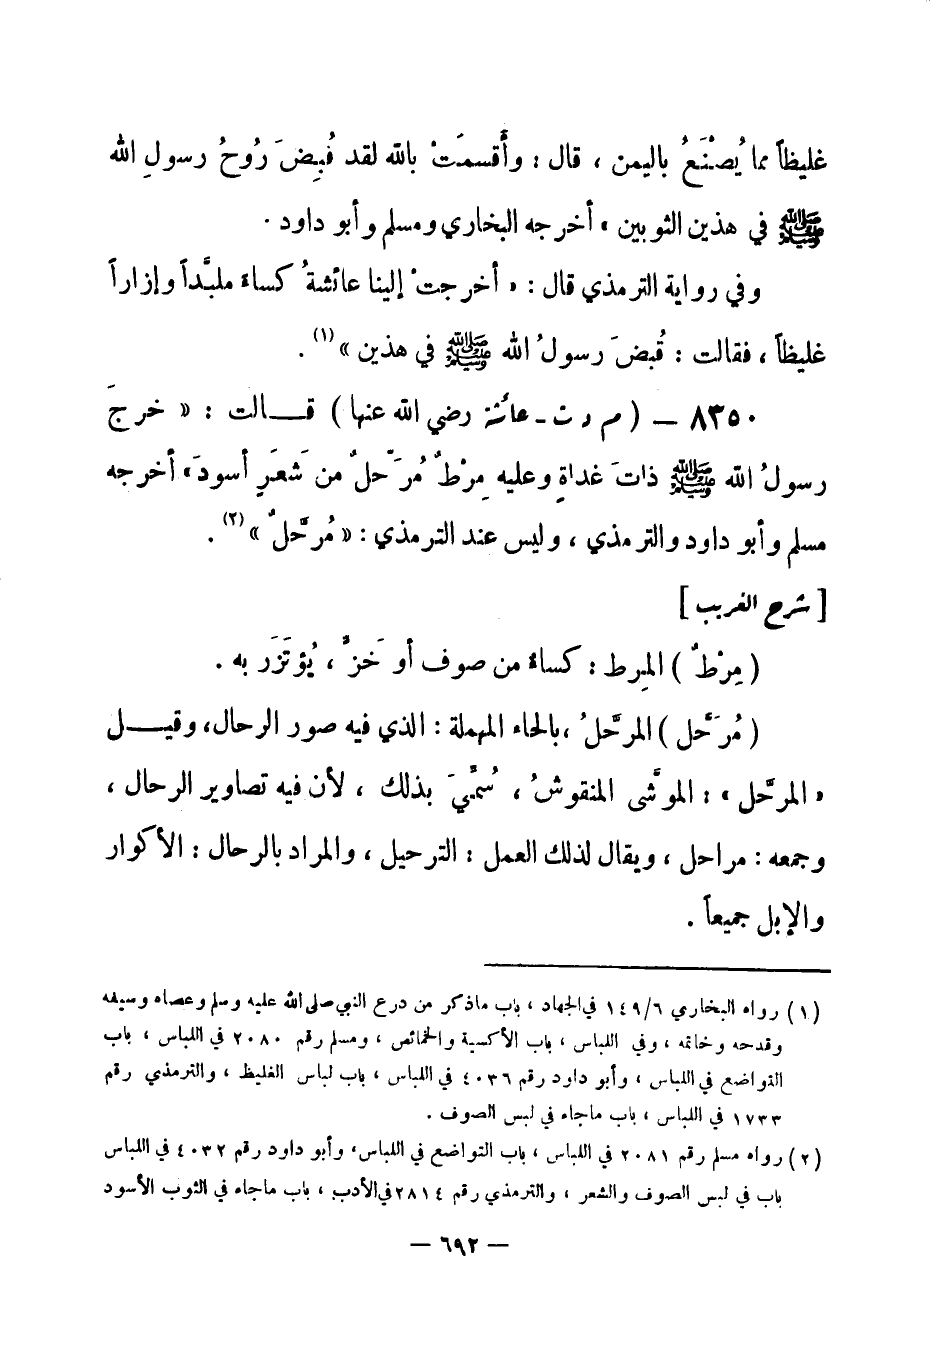 غليظاً مما يُصْنَعُ باليمن ، قال : وأَقسمَتْ بالله لقد قُبِضَ رُوحُ رسولِ الله
ﷺ في هذين الثوبين » أخرجه البخاري ومسلم وأبو داود .
وفي رواية الترمذي قال : « أخرجتْ إلينا عائشةُ كساءً ملبَّداً وإزاراً
غليظاً ، فقالت : قُبضَ رسولُ الله ﷺ في هذين » (١) .
٨٣٥٠ — ( م د ت ـ عائشة رضي الله عنها ) قـــالت : « خرجَ
رسولُ الله ﷺ ذاتَ غداةٍ وعليه مِرْطٌ مُرَحَّلٌ من شَعَرٍ أسودَ » أخرجه
مسلم وأبو داود والترمذي ، وليس عند الترمذي : « مُرحَّلٌ » (٢) .
[ شرح الغريب ]
( مِرْطٌ ) المِرط : كساءٌ من صوف أو خَزٍّ ، يُؤتَزَر به .
( مُرَحَّل ) المرحَّلُ ، بالحاء المهملة : الذي فيه صور الرحال ، وقيـــل
« المرحَّل » : الموشَّى المنقوشُ ، سُمِّيَ بذلك ، لأن فيه تصاوير الرحال ،
وجمعه : مراحل ، ويقال لذلك العمل : الترحيل ، والمراد بالرحال : الأكوار
والإبل جميعاً .
(١) رواه البخاري ١٤٩/٦ في الجهاد ، باب ماذكر من درع النبي صلى الله عليه وسلم وعصاه وسيفه
وقدحه وخاتمه ، وفي اللباس ، باب الأكسية والخمائص ، ومسلم رقم ٢٠٨٠ في اللباس ، باب
التواضع في اللباس ، وأبو داود رقم ٤٠٣٦ في اللباس ، باب لباس الغليظ ، والترمذي رقم
١٧٣٣ في اللباس ، باب ماجاء في لبس الصوف .
(٢) رواه مسلم رقم ٢٠٨١ في اللباس ، باب التواضع في اللباس ، وأبو داود رقم ٤٠٣٢ في اللباس
باب في لبس الصوف والشعر ، والترمذي رقم ٢٨١٤ في الأدب ، باب ماجاء في الثوب الأسود
— ٦٩٢ —